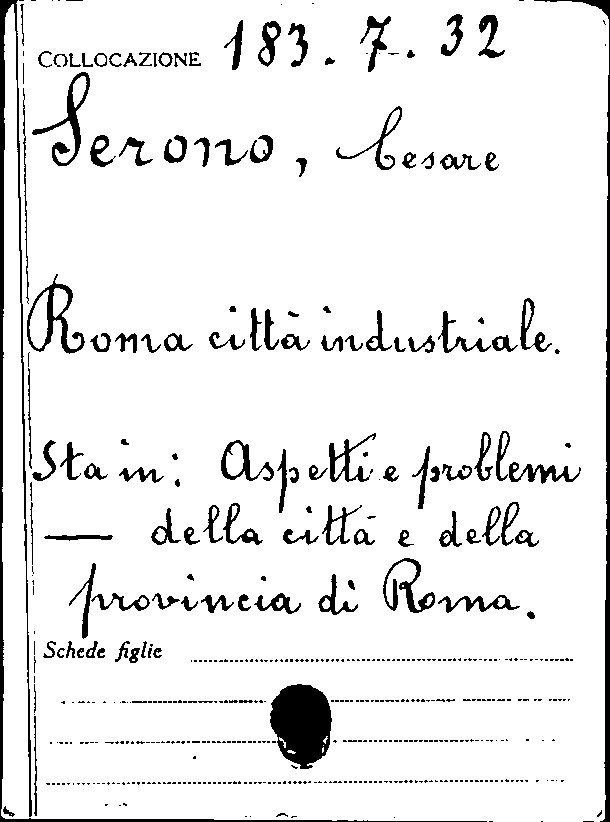 COLLOCAZIONE 183.7.32
Serono, Cesare
Roma città industriale.
Sta in: Aspetti e problemi
— della città e della
provincia di Roma.
Schede figlie